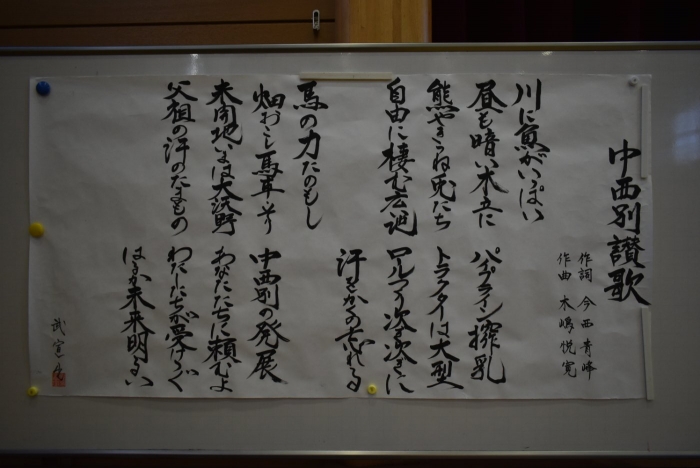 中西別讃歌
作詞 今西青峰
作曲 木嶋悦寛
川に魚がいっぱい
昼も暗い木立に
熊やきつね兎たち
自由に棲む
馬の力たのもし
畑おこし馬車そり
未開地いまは大沃野
父祖の汗のたまもの
パイプライン搾乳
トラクターは大型
ロール 次ぎ次ぎに
汗をかくの忘れてる
中西別の発展
あなたたちに頼むよ
わたしたちが受けつぐ
はるか未来明るい